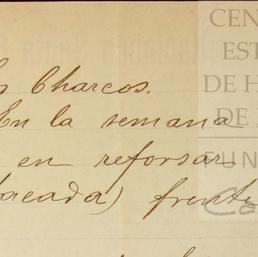 Charcos.
En la semana
en reforsar
frente
CEN
EST
DE H
DE
FUN